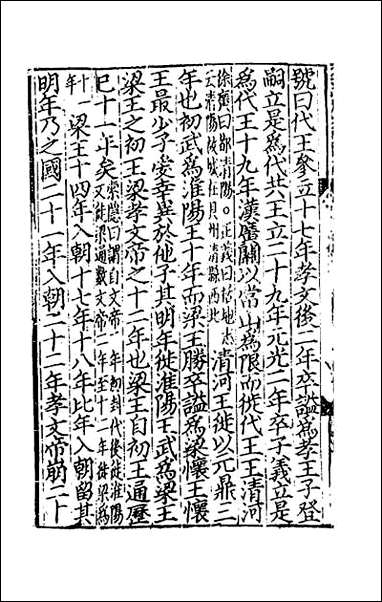 號曰代王參立十七年孝文後二年卒謚爲孝王子登
嗣立是爲代共王立二十九年元光二年卒子義立是
爲代王十九年漢廣關以常山爲限而徙代王王清河
徐廣曰都清陽○正義曰括地志
云清陽故城在貝州清縣西北
清河王徙以元鼎三
年也初武爲淮陽王十年而梁王勝卒謚爲梁懷王懷
王最少子愛幸異於他子其明年徙淮陽王武爲梁王
梁王之初王梁孝文帝之十二年也梁王自初王通歷
已十一年矣
索隱曰謂自文帝二年初封代後徙淮陽
又徙梁通數文帝二年至十二年徙梁爲
十一
年
梁王十四年入朝十七年十八年比年入朝留其
明年乃之國二十一年入朝二十二年孝文帝崩二十